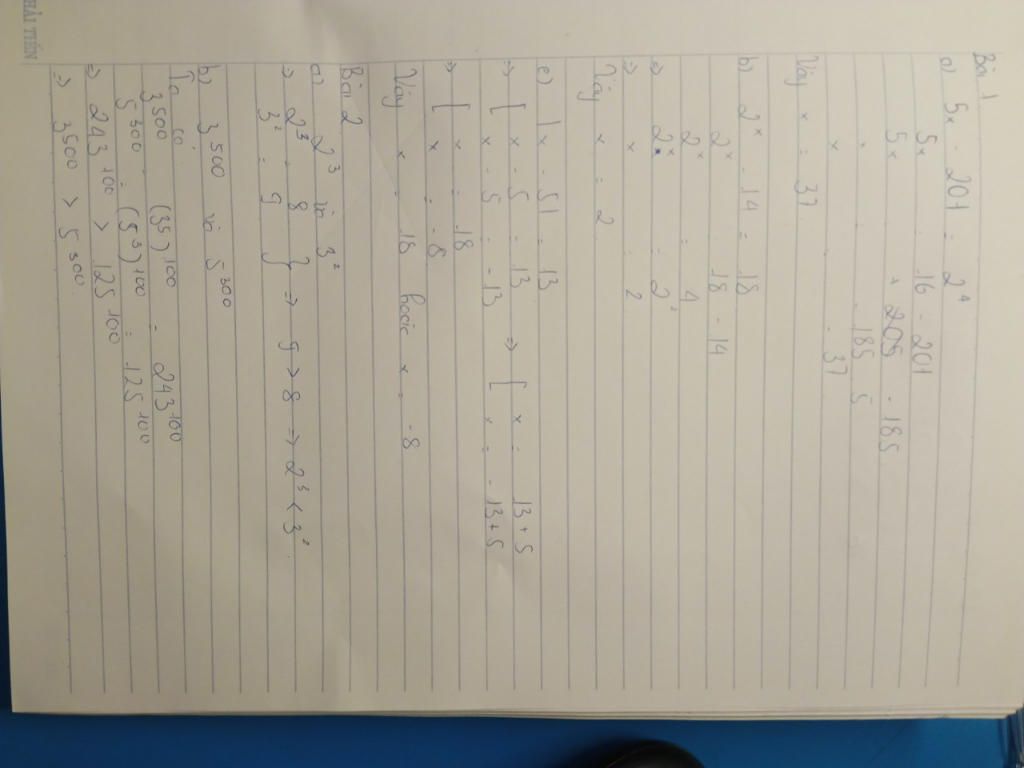 HẢI TIẾN
Bài 1
a) 5x - 201 = 2⁴
5x = 16 - 201
5x = 205 - 185
x = 185 5
x = 37
Vậy x = 37
b) 2ˣ - 14 = 18
2ˣ = 18 - 14
2ˣ = 4
⇒ 2ˣ = 2²
⇒ x = 2
Vậy x = 2
c) |x - 5| = 13
⇒ [ x - 5 = 13 ⇒ [ x = 13 + 5
x - 5 = -13 x = -13 + 5
⇒ [ x = 18
x = -8
Vậy x = 18 hoặc x = -8
Bài 2
a) 2³ và 3²
⇒ 2³ = 8 } ⇒ 9 > 8 ⇒ 2³ < 3²
3² = 9
b) 3⁵⁰⁰ và 5³⁰⁰
Ta có
3⁵⁰⁰ = (3⁵)¹⁰⁰ = 243¹⁰⁰
5³⁰⁰ = (5³)¹⁰⁰ = 125¹⁰⁰
⇒ 243¹⁰⁰ > 125¹⁰⁰
⇒ 3⁵⁰⁰ > 5³⁰⁰